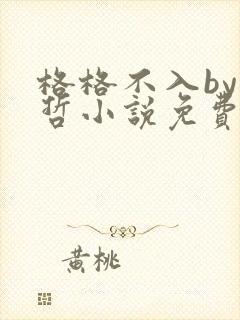 格格不入by
哲小說免費
黃桃